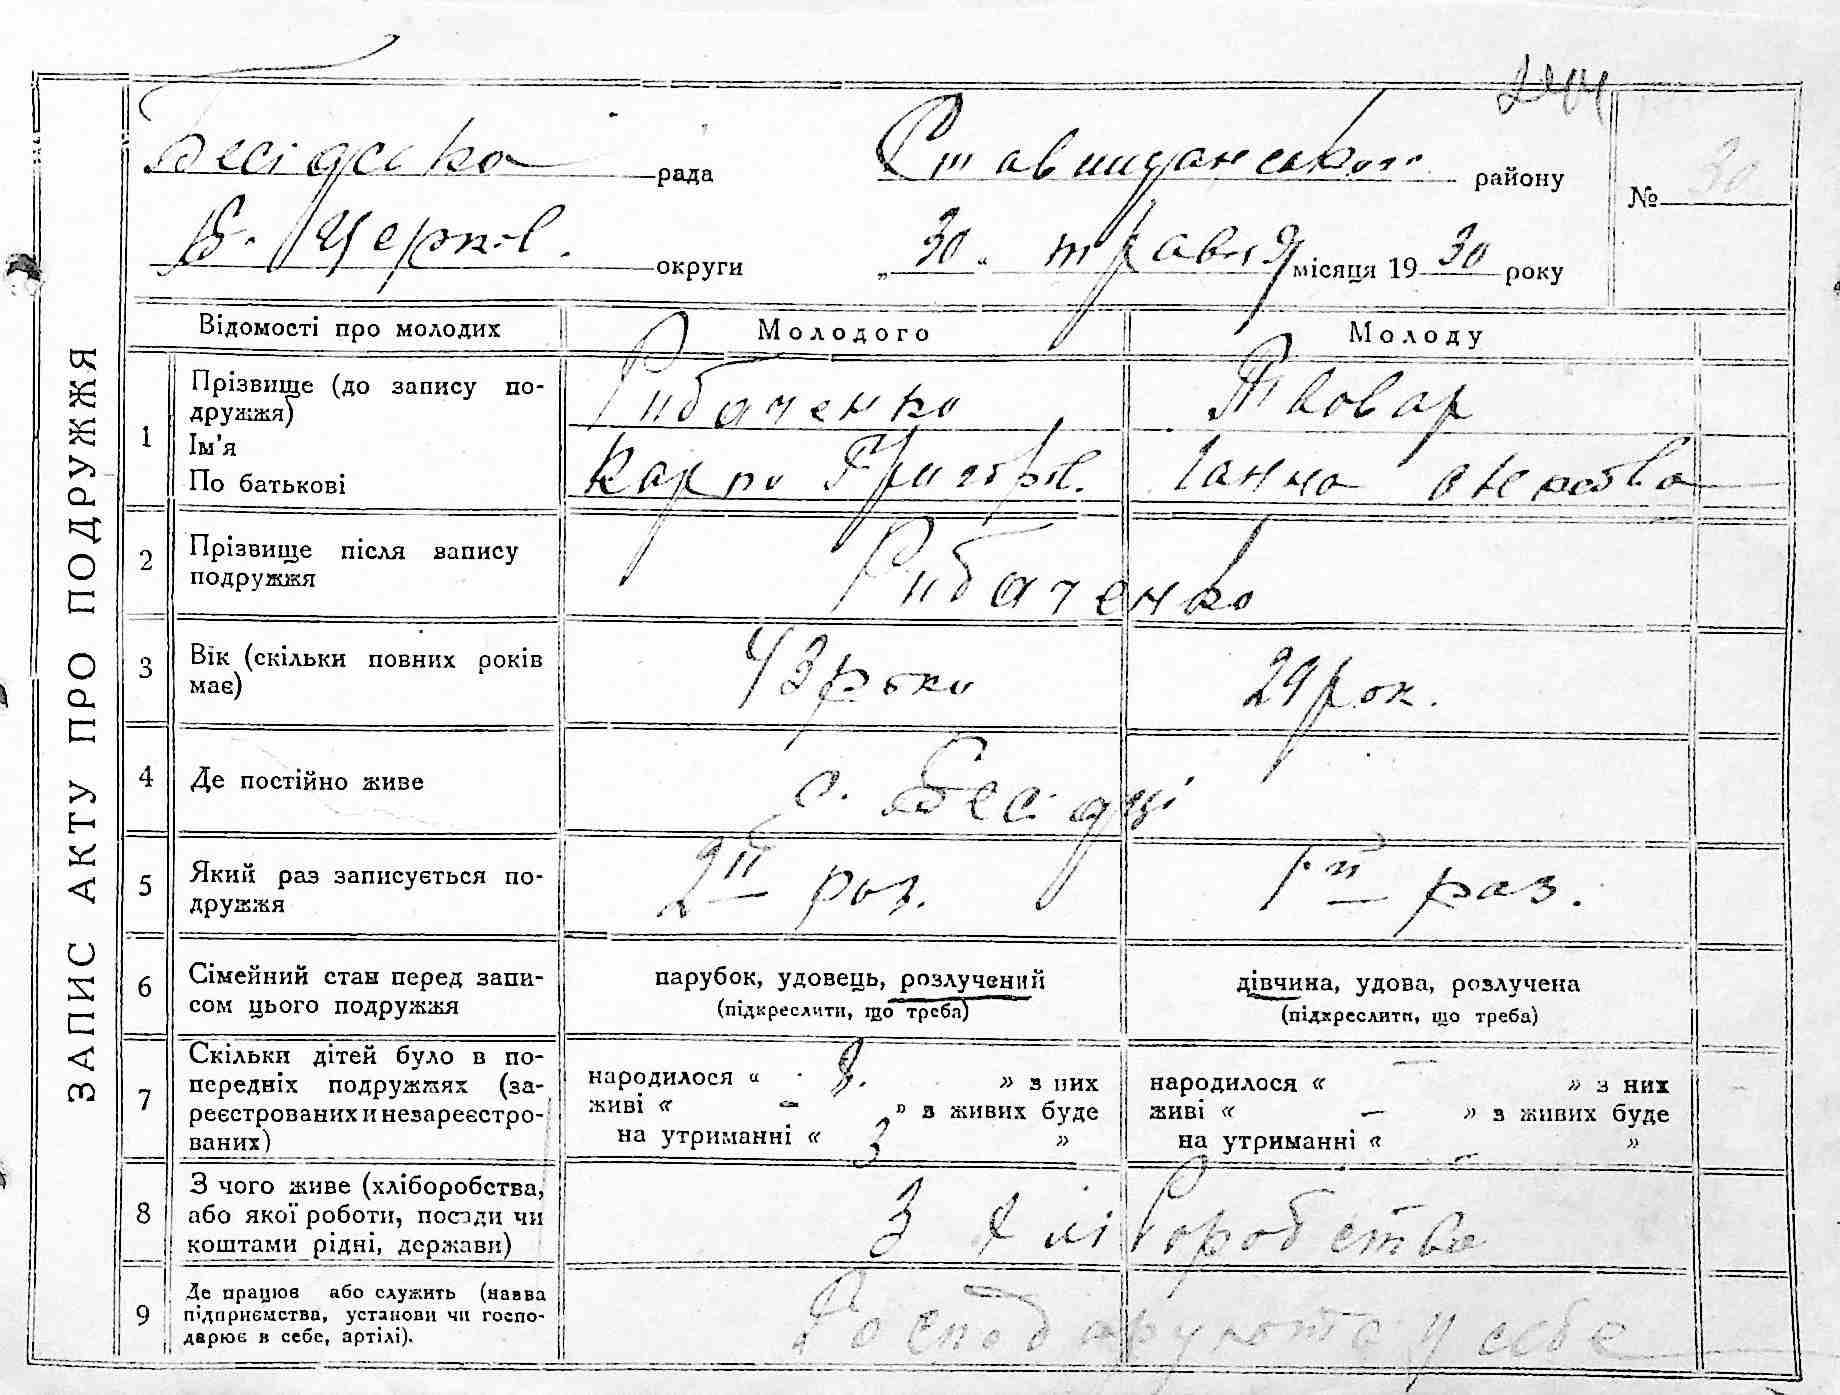 244
Бесідська рада Ставищанського району № 30
Б. Церків. округи „30“ травня місяця 1930 року
ЗАПИС АКТУ ПРО ПОДРУЖЖЯ
Відомості про молодих Молодого Молоду
1 Прізвище (до запису по-
дружжя) Рибаченко Товар
Ім’я
По батькові Карпо Григоров. Ганна
2 Прізвище після запису
подружжя Рибаченко
3 Вік (скільки повних років
має) 43 роки 29 рок.
4 Де постійно живе с. Бесідці
5 Який раз записується по-
дружжя 2й раз. 1й раз.
6 Сімейний стан перед запи-
сом цього подружжя парубок, удовець, розлучений дівчина, удова, розлучена
(підкреслити, що треба) (підкреслити, що треба)
7 Скільки дітей було в по-
передніх подружжях (за-
реєстрованих и незареєстро-
ваних) народилося « 8. » з них народилося « — » з них
живі « - » з живих буде живі « — » з живих буде
на утриманні « 3 » на утриманні « — »
8 З чого живе (хліборобства,
або якої роботи, посади чи
коштами рідні, держави) З хліборобства
9 Де працює або служить (назва
підприємства, установи чи госпо-
дарює в себе, артілі). Господарують у себе